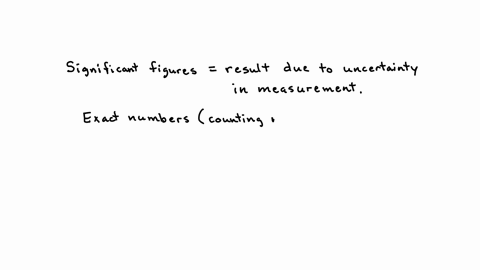 Significant figures = result due to uncertainty
in measurement.
Exact numbers (counting